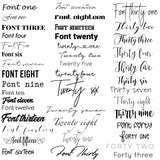 Font one
Font two
FONT THREE
Font four
Font five
Font six
Font seven
FONT EIGHT
Font nine
Font ten
Font eleven
Font twelve
Font thirteen
Font fifteen
Font sixteen
Font seventeen
Font eighteen
FONT NINETEEN
Font twenty
Twenty one
Twenty two
Twenty three
Twenty four
Twenty five
Twenty six
Font Thirty
Thirty one
Thirty two
Thirty three
Thirty four
Thirty five
Thirty six
Thirty seven
Thirty eight
Thirty nine
Font forty
FORTY TWO
Forty three